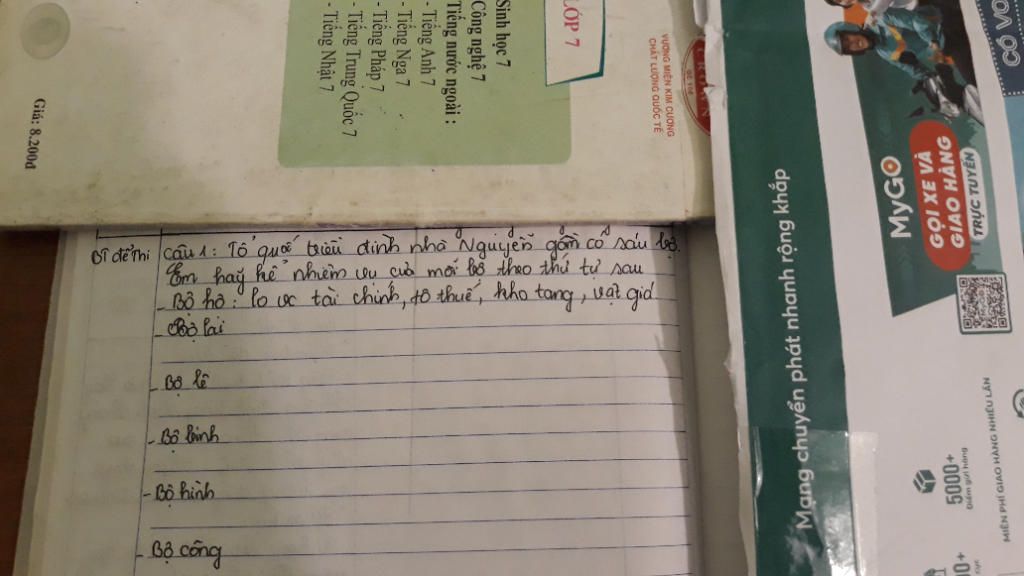 LỚP 7
Sinh học 7
Công nghệ 7
Tiếng nước ngoài :
- Tiếng Anh 7
- Tiếng Nga 7
- Tiếng Pháp 7
- Tiếng Trung Quốc 7
- Tiếng Nhật 7
VƯƠNG MIỆN KIM CƯƠNG
CHẤT LƯỢNG QUỐC TẾ
Giá: 8.200đ
Đề thi
Câu 1: Tổ quốc triều đình nhà Nguyễn gồm có sáu bộ.
Em hãy kể nhiệm vụ của mỗi bộ theo thứ tự sau
- Bộ hộ: lo vc tài chính, tô thuế, kho tàng, vật giá
- Bộ lại
- Bộ lễ
- Bộ binh
- Bộ hình
- Bộ công
MyGO
GỌI XE VÀ
GIAO HÀNG
TRỰC TUYẾN
Mạng chuyển phát nhanh rộng khắp
5000+
Điểm gửi hàng
MIỄN PHÍ GIAO HÀNG NHIỀU LẦN
CÓ VO